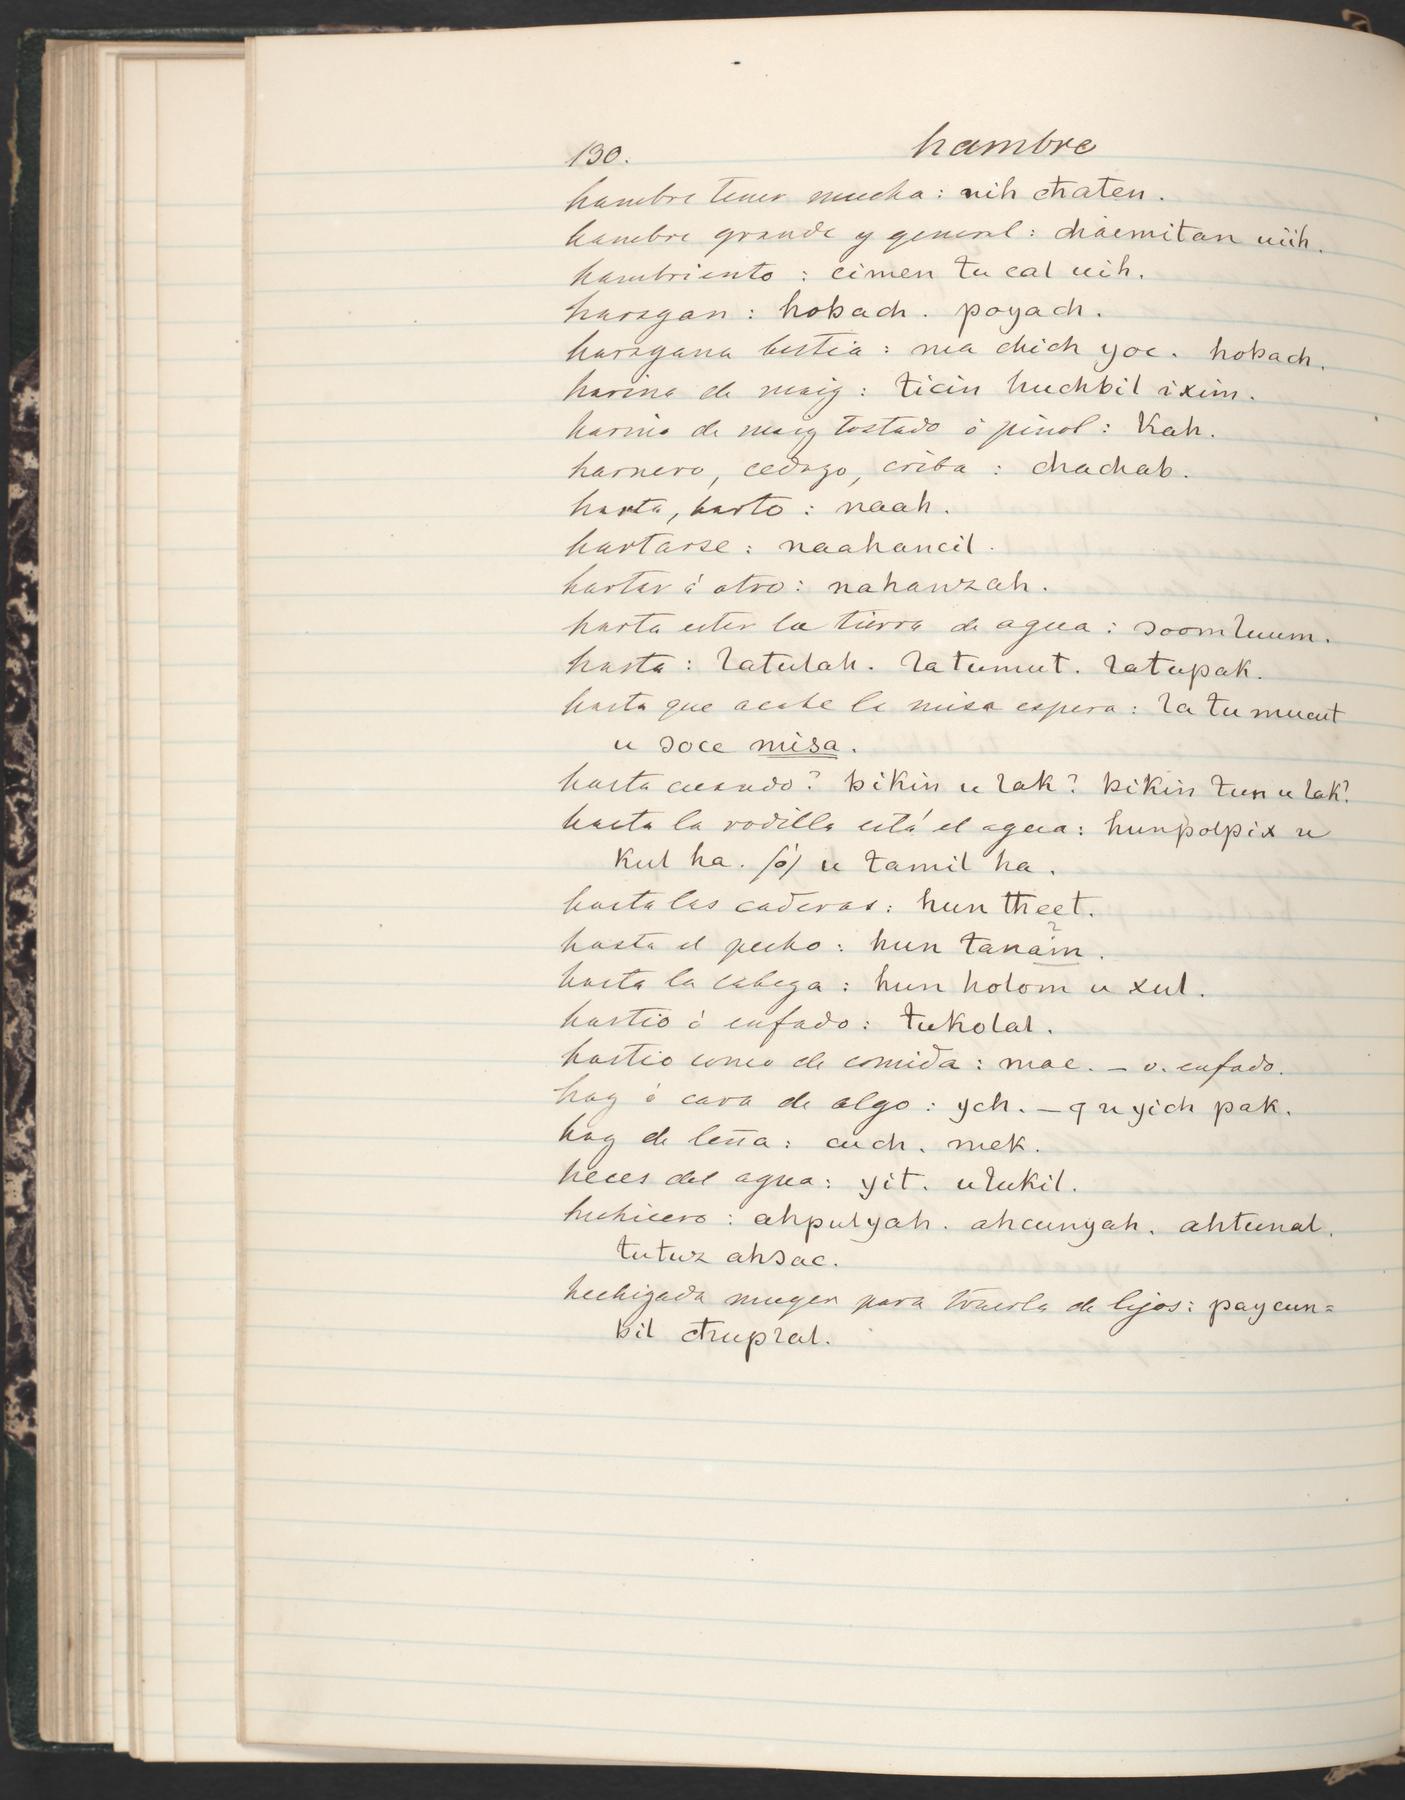 130. hambre
hambre tener mucha: uih cħaten.
hambre grande y general: chacmitan uiih.
hambriento: cimen tu cal uih.
haragan: hobach. poyach.
haragana bestia: ma chich yoc. hobach.
harina de maiz: ticin huchbil ixim.
harina de maiz tostado ó pinol: kah.
harnero, cedazo, criba: chachab.
harta, harto: naah.
hartarse: naahancil.
hartar á otro: nahanzah.
harta estar la tierra de agua: ɔoomluum.
hasta: latulah. latumut. latupak.
hasta que acabe la misa espera: la tu mucut
u ɔoce misa.
hasta cuando? bikin u lak? bikin tun u lak?
hasta la rodilla está el agua: hunpolpix u
kul ha. /ó/ u tamil ha.
hasta las caderas: hun tħeet.
hasta el pecho: hun tanam?.
hasta la cabeza: hun holom u xul.
hastio ó enfado: tukolal.
hastio como de comida: mac. – v. enfado.
haz ó cara de algo: ych. – q u yich pak.
haz de leña: cuch. mek.
heces del agua: yit. u lukil.
hechicero: ahpulyah. ahcunyah. ahtunal.
tutuz ahɔac.
hechizada muger para traerla de lejos: paycun=
bil cħuplal.